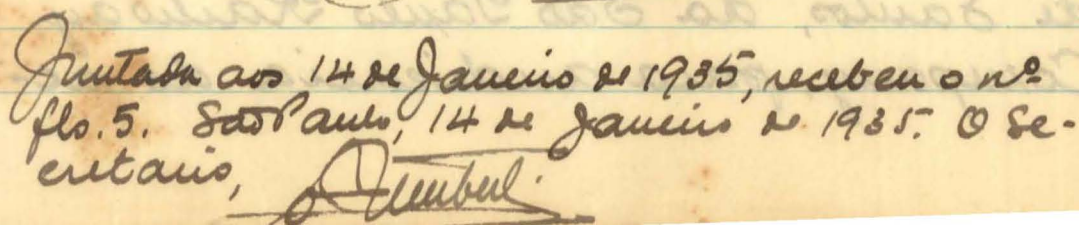 Juntada aos 14 de Janeiro de 1935, recebeu o nº
fls. 5. São Paulo, 14 de Janeiro de 1935. O Se-
cretario,